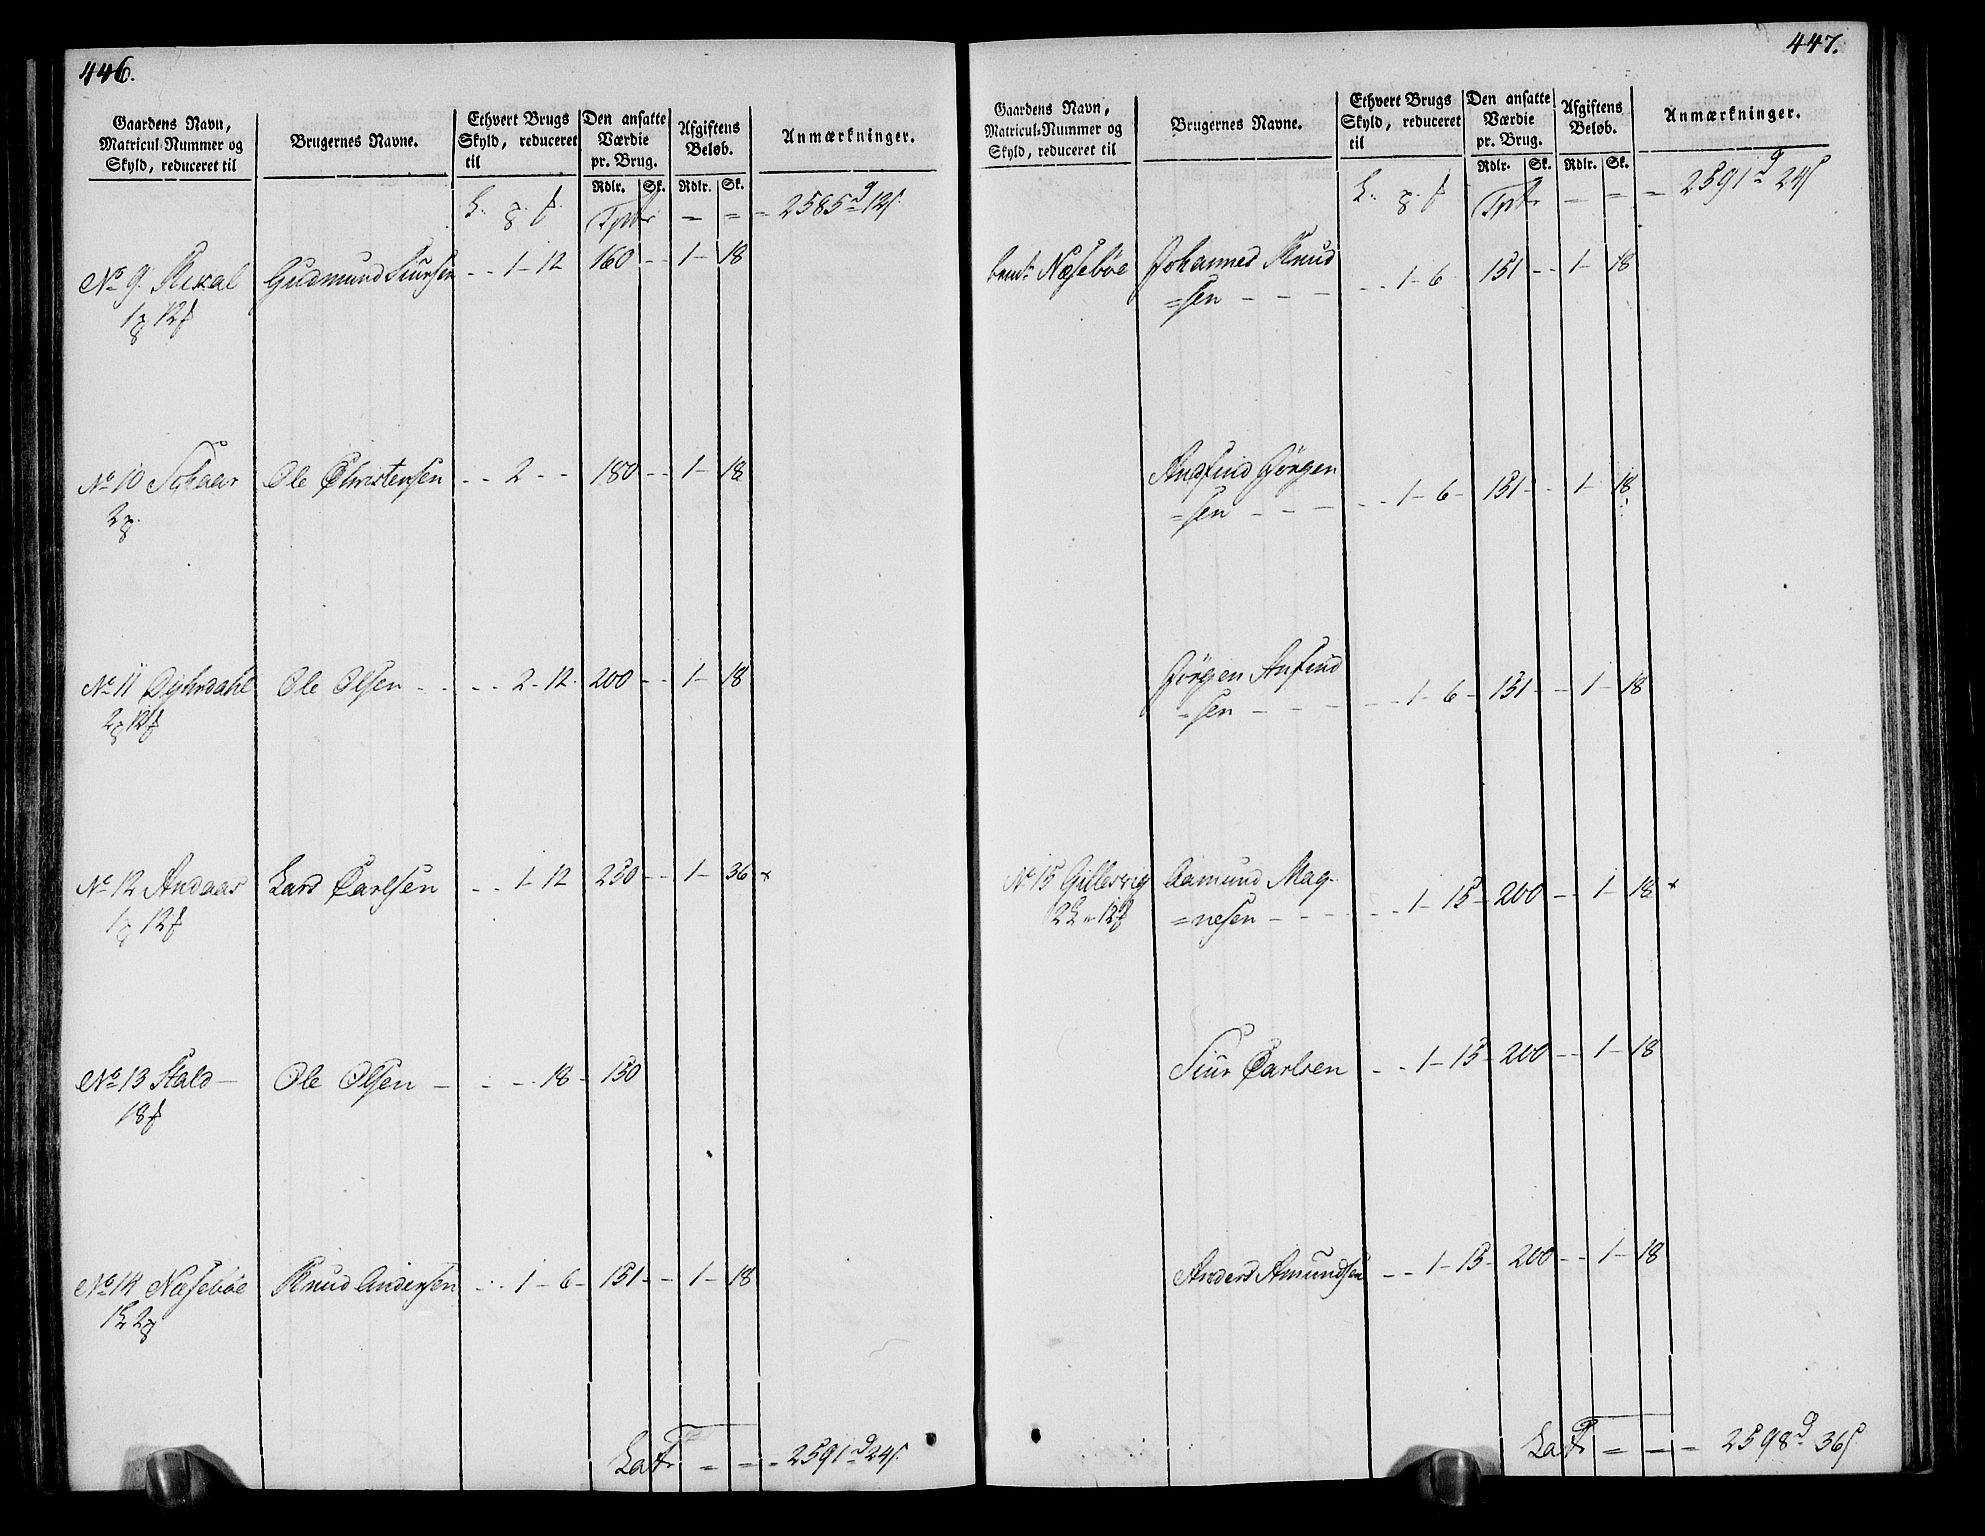 446.
Gaardens Navn, Matricul-Nummer og Skyld, reduceret til | Brugernes Navne. | Ethvert Brugs Skyld, reduceret til | Den ansatte Værdie pr. Brug. | Afgiftens Beløb. | Anmærkninger.
Rdlr. Sk. Rdlr. Sk.
Tpt - = = 2585 12
No 9. Rixal Gudmund Siursen - - 1 - 12 160 - - 1 - 18
12
No 10 Schaar Ole Christensen - - 2 - - 180 - - 1 - 18
2
No 11 Dyhrdahl Ole Olsen - - - - 2 - 12 200 - - 1 - 18
2 12
No 12 Andaas Lars Carlsen - - 1 - 12 250 - - 1 - 36 x
1 12
No 13 Stald - Ole Olsen - - - - 18 - 150
18
No 14 Næsebøe Knud Andersen - - 1 - 6 - 151 - - 1 - 18
1 2
Lat = = = 2591 24
447.
Gaardens Navn, Matricul-Nummer og Skyld, reduceret til | Brugernes Navne. | Ethvert Brugs Skyld, reduceret til | Den ansatte Værdie pr. Brug. | Afgiftens Beløb. | Anmærkninger.
Rdlr. Sk. Rdlr. Sk.
Tpt - = = 2591 24
Næsebøe Johannes Knud
=sen - - - - - 1 - 6 151 - - 1 - 18
Jørgen
=sen - - - - - 1 - 6 - 151 - - 1 - 18
Jørgen Anfind
=sen - - - - - 1 - 6 - 151 - - 1 - 18
No 15 Gillesvig Aamund Mag-
2 12 =nesen - - - - - 1 - 15 - 200 - - 1 - 18 x
Siur Carlsen - - 1 - 15 - 200 - - 1 - 18
Anders Amundsen - - 1 - 15 - 200 - - 1 - 18
Lat = - - 2598 36